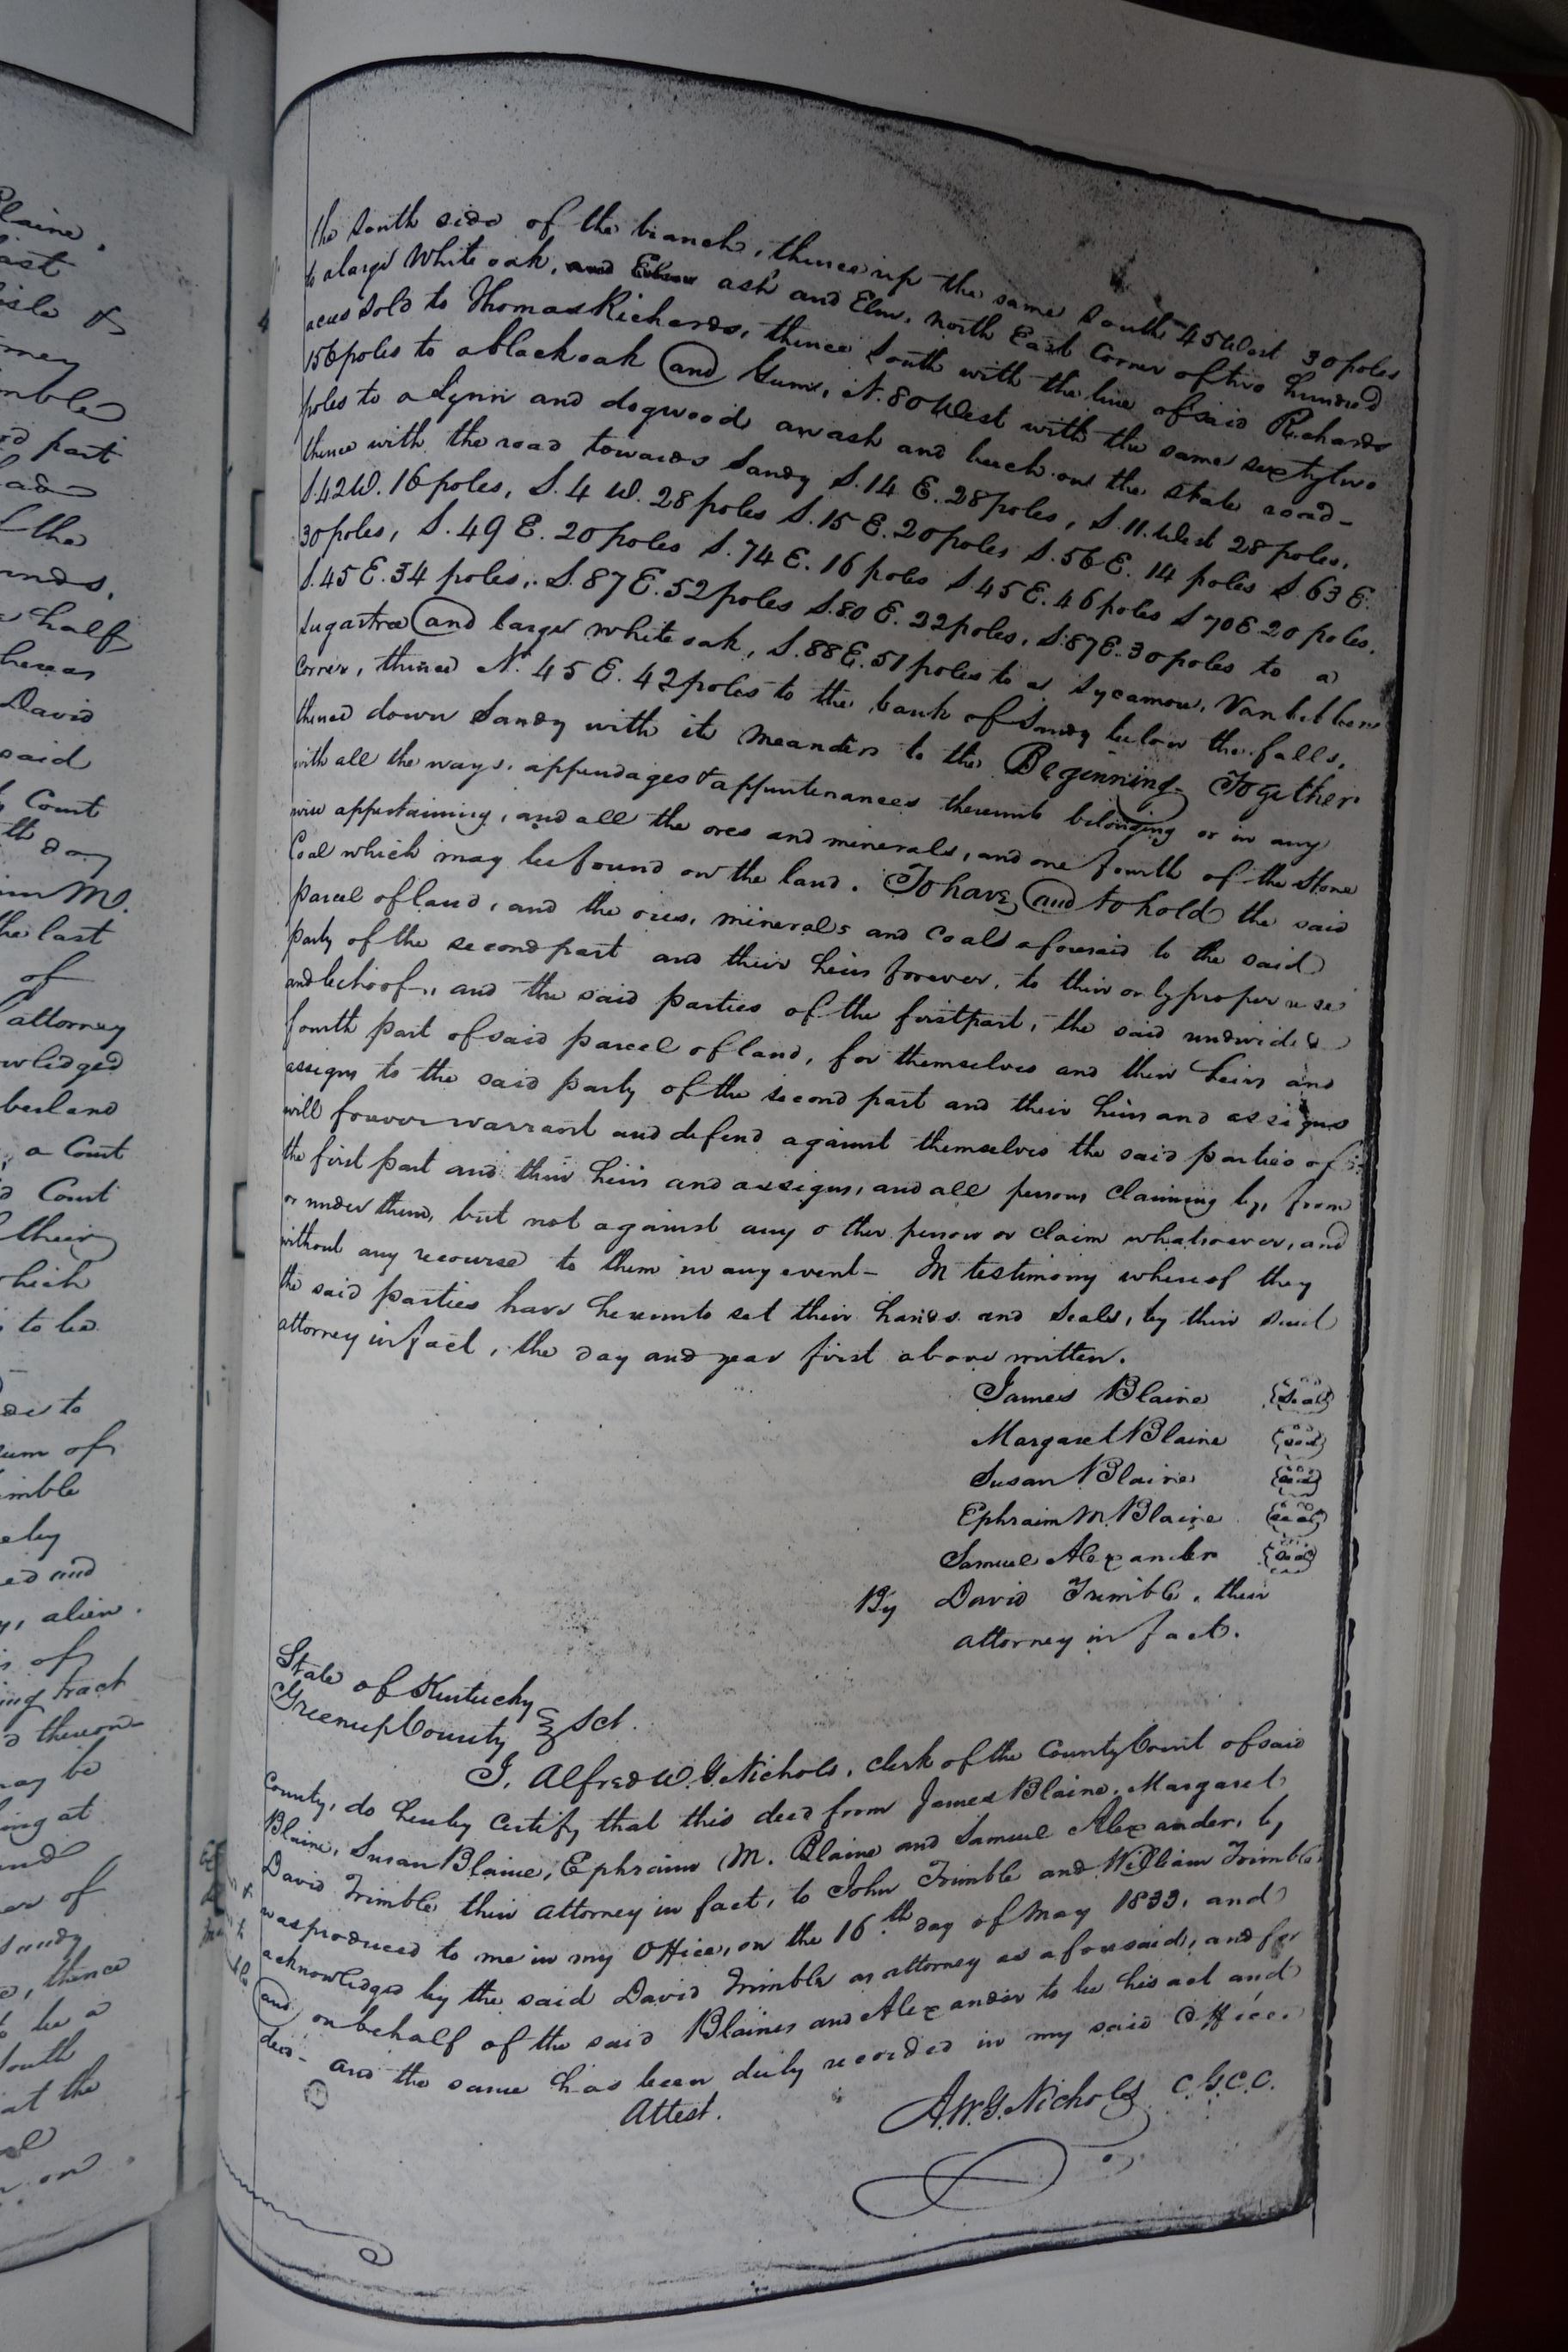 Blaine,
last
isle &
rney
mble
d part
lad
f the
nds,
half
hereas
David
said
Court
th day
im M.
he last
of
attorney
owledged
berland
, a Court
d Court
their
hich
to be
de to
sum of
imble
eby
ed and
y, alien.
s of
ing tract
d thereon
may be
ing at
and
er of
Sandy
, thence
to be a
South
at the
on
the South side of the branch, thence up the same South 45 West 30 poles
to a large White oak, and Elm ash and Elm, north East Corner of two hundred
acres sold to Thomas Richards, thence South with the line of said Richards
156 poles to a black oak and Gum, N. 80 West with the same sixty two
poles to a Lynn and dogwood an ash and beech on the state road-
thence with the road towards Sandy S. 14 E. 28 poles, S. 11. West 28 poles,
S. 42 W. 16 poles, S. 4 W. 28 poles S. 15 E. 20 poles S. 56 E. 14 poles S. 63 E.
30 poles, S. 49 E. 20 poles S. 74 E. 16 poles S. 45 E. 46 poles S 70 E 20 poles.
S. 45 E. 34 poles, S. 87 E. 52 poles S. 80 E. 22 poles, S. 87 E. 30 poles to a
Sugartree and large white oak, S. 88 E. 51 poles to a Sycamore, Vanbibbers
Corner, thence N. 45 E. 42 poles to the bank of Sandy below the falls,
thence down Sandy with its meanders to the Beginning- Together
with all the ways, appendages & appurtenances thereunto belonging or in any
wise appertaining, and all the ores and minerals, and one fourth of the Stone
Coal which may be found on the land. To have and to hold the said
parcel of land, and the ores, minerals and Coals aforesaid to the said
party of the second part and their heirs forever, to their only proper use
and behoof, and the said parties of the first part, the said undivided
fourth part of said parcel of land, for themselves and their heirs and
assigns to the said party of the second part and their heirs and assigns
will forever warrant and defend against themselves the said parties of
the first part and their heirs and assigns, and all persons claiming by, from
or under them, but not against any other person or claim whatsoever, and
without any recourse to them in any event- In testimony whereof they
the said parties have hereunto set their hands and Seals, by their said
attorney in fact, the day and year first above written.
James Blaine {Seal}
Margaret Blaine {Seal}
Susan Blaine {Seal}
Ephraim M. Blaine {Seal}
Samuel Alexander {Seal}
By David Trimble, their
attorney in fact.
State of Kentucky
Greenup County } Sct.
I, Alfred W. G. Nichols, clerk of the County Court of said
County, do hereby Certify that this deed from James Blaine, Margaret
Blaine, Susan Blaine, Ephraim M. Blaine and Samuel Alexander, by
David Trimble their attorney in fact, to John Trimble and William Trimble
was produced to me in my Office, on the 16th day of May 1833, and
acknowledged by the said David Trimble as attorney as aforesaid, and for
and on behalf of the said Blaines and Alexander to be his act and
deed- and the same has been duly recorded in my said Office.
Attest. A. W. G. Nichols C. G. C. C.